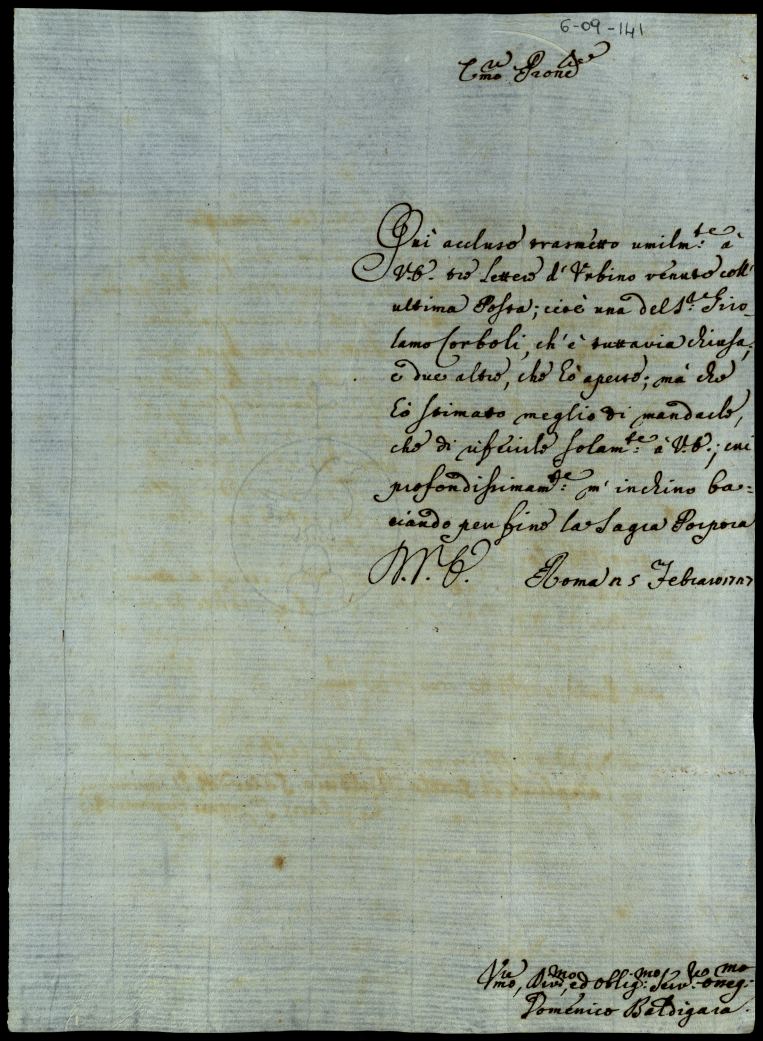 6-09-141
E.mo Prone
Qui accluse trasmetto umilm.te à
V.E. tre lettere d'Urbino venute coll'
ultima Posta; cioè una del S.r Giro-
lamo Corboli, ch'è tuttavia chiusa;
e due altre, che hò aperte; mà che
hò stimato meglio di mandarle,
che di riferirle solam.te à V.E.; cui
profondissimam.te m'inchino ba-
ciando per fine la Sagra Porpora
D.V.E. Roma 5 Febraro 1727
Um.mo, Div.mo, ed oblig.mo Serv.re osseq.mo
Domenico Baldigara.